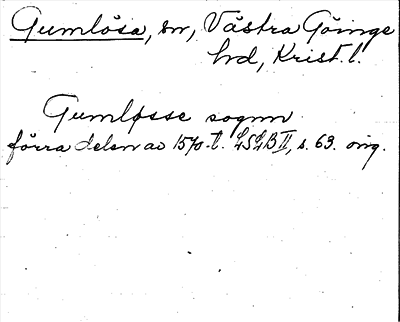 Gumlösa, sn, Västra Göinge
hd, Krist. l.
Gumløsse sognn
förra delen av 1570-t. LSLB II, s. 63. orig.